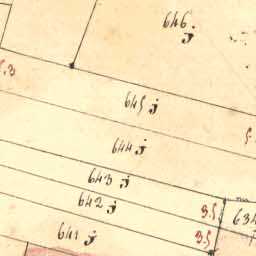 646 j
645 j
644 j
643 j
642 j
3.5
634
641 j
3.5